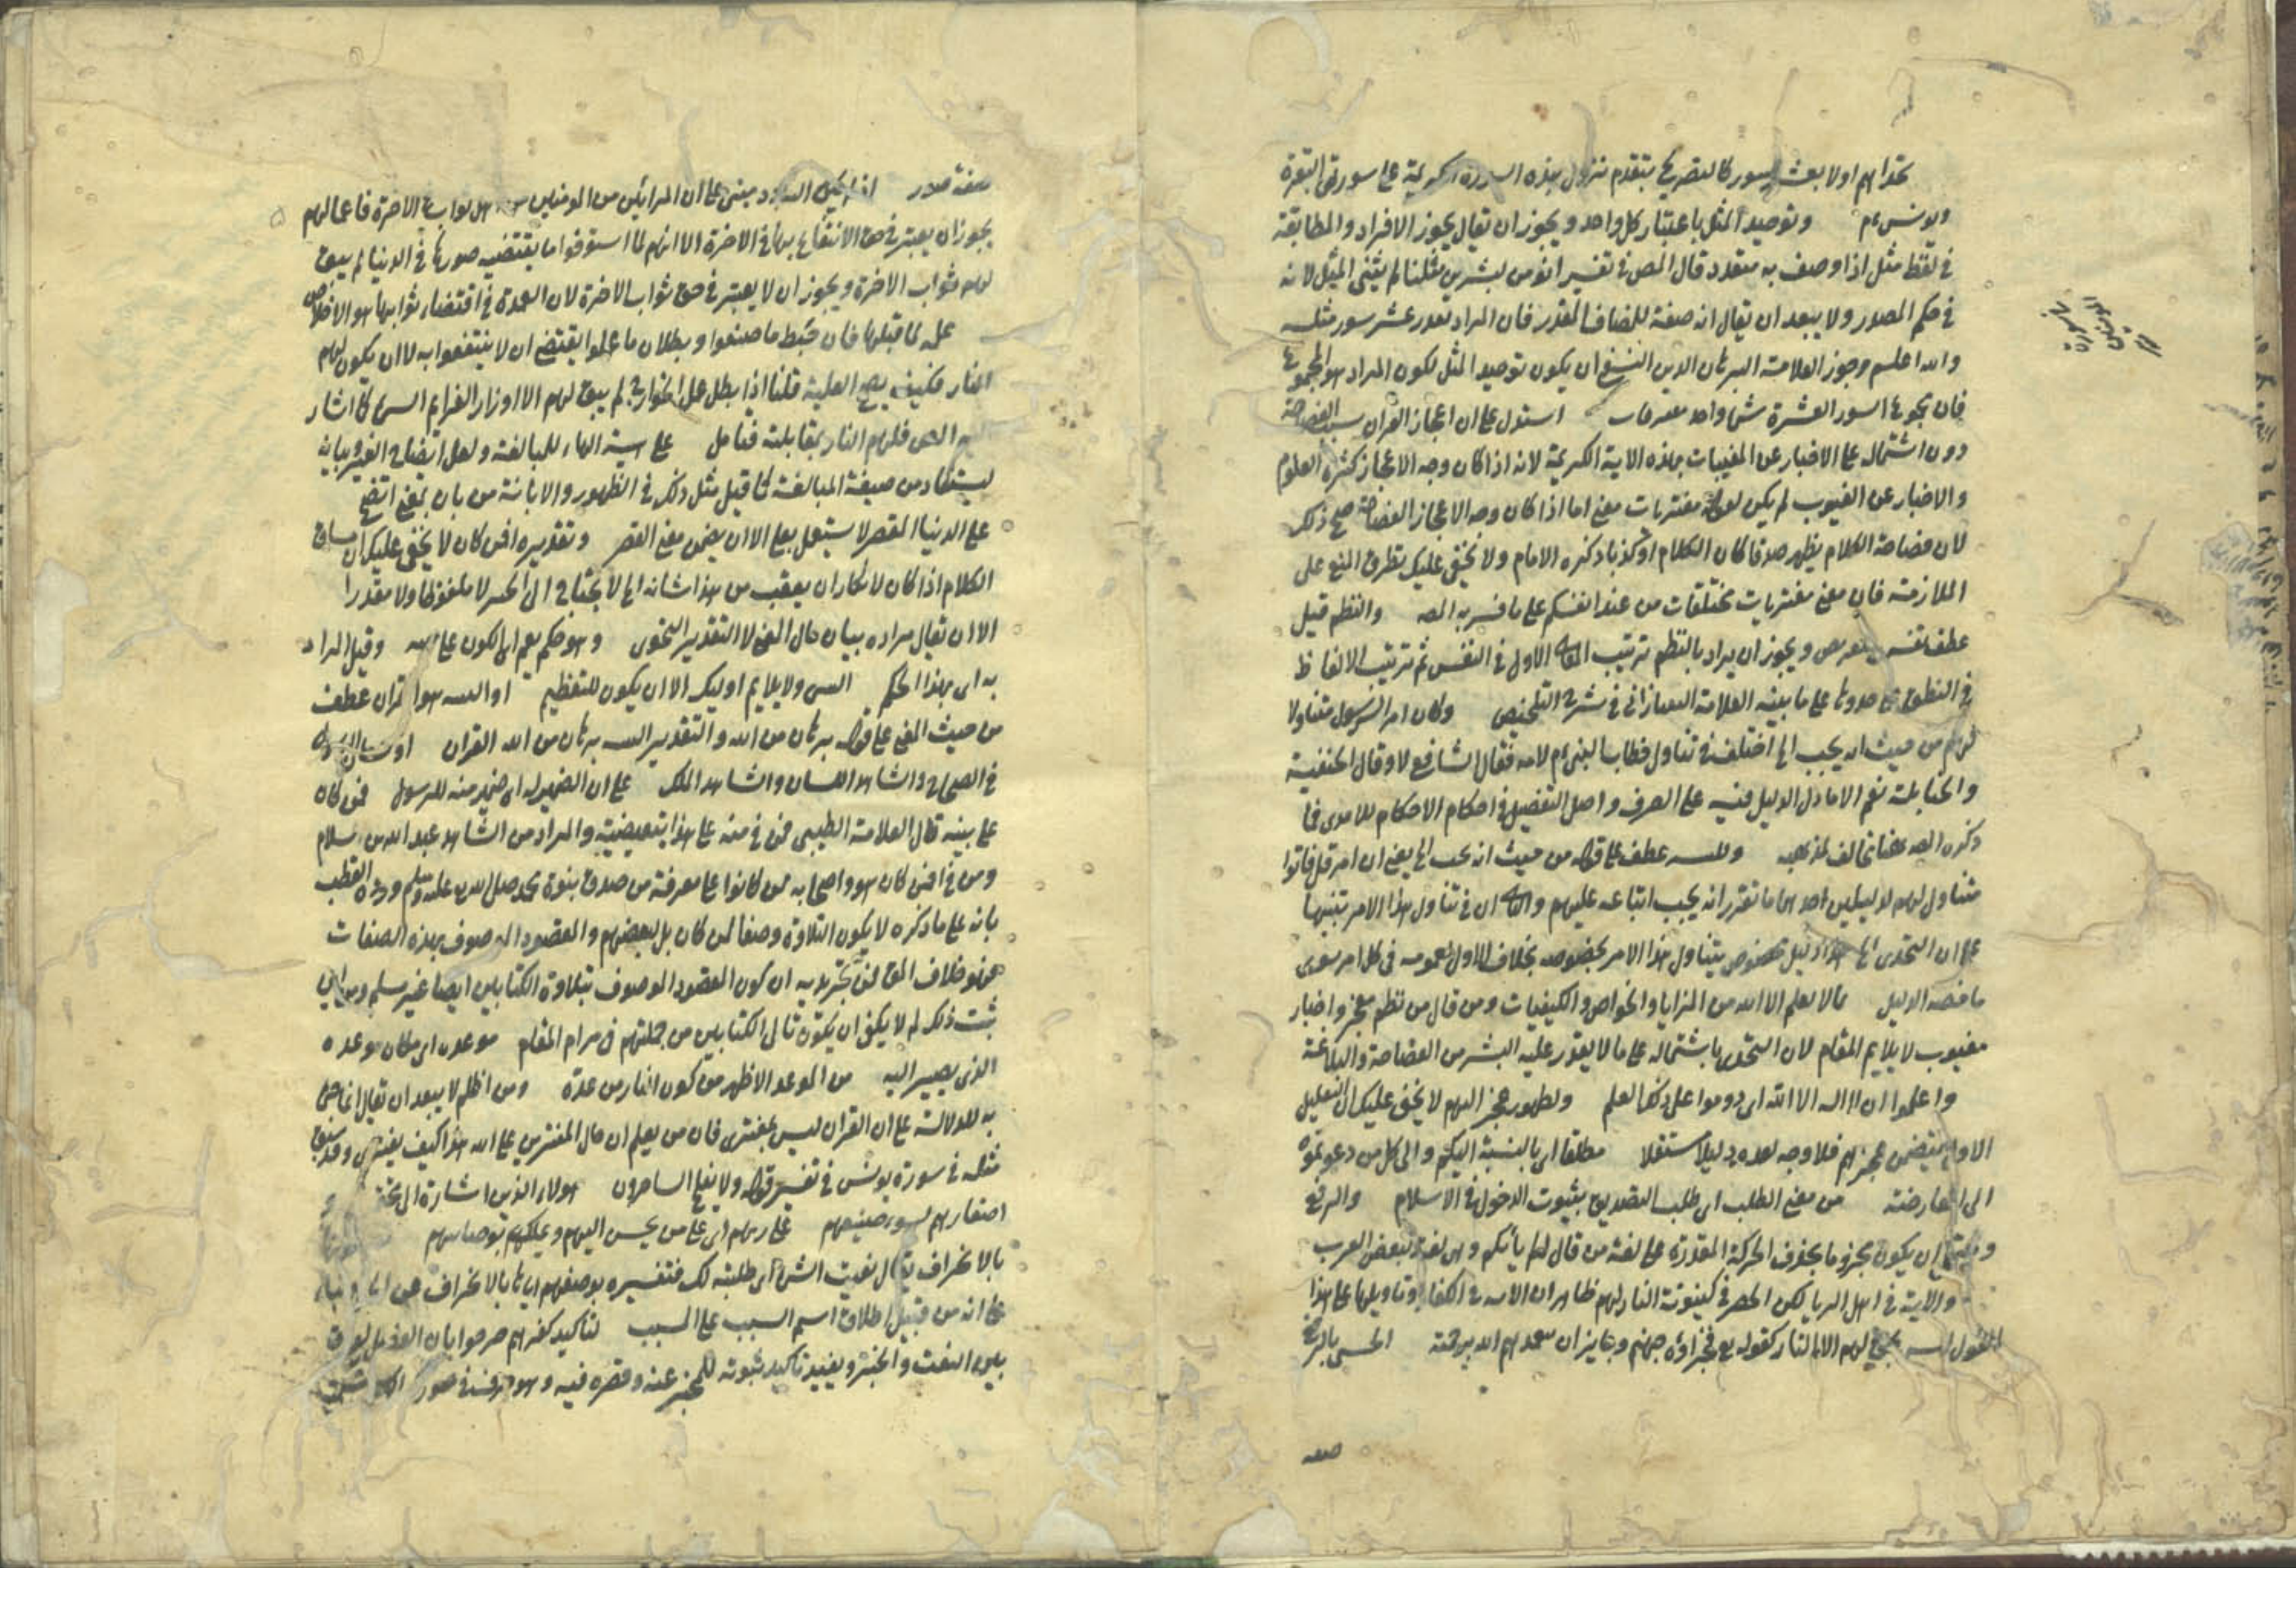 تحداهم اولا بعشر سور كالتصريح بتقدم نزول هذه السورة الكريمة على سورتي البقرة
ويونس عم وتوحيد المثل باعتبار كل واحد ويجوز ان يقال يجوز الافراد والمطابقة
في لفظ مثل اذا وصف به متعدد قال المص في تفسير انؤمن لبشرين مثلنا لم يثنى المثل لانه
في حكم المصدر ولا يبعد ان يقال انه صفة للمضاف المقدر فان المراد بقدر عشر سور مثله
والله اعلم وجوز العلامة البرهان الدين النسفي ان يكون توحيد المثل لكون المراد هو المجموع
فان مجموع السور العشرة شئ واحد مفتريات استدل على ان اعجاز القران بسبب الفصاحة
دون اشتماله على الاخبار عن المغيبات بهذه الاية الكريمة لانه اذا كان وجه الاعجاز كثرة العلوم
والاخبار عن الغيوب لم يكن لقوله مفتريات معنى اما اذا كان وجه الاعجاز الفصاحة صح ذلك
لان فصاحة الكلام يظهر صدقا كان الكلام او كذبا ذكره الامام ولا يخفى عليك تطرق المنع على
الملازمة فان معنى مفتريات مختلقات من عند انفسكم على ما فسر به المص والنظم قيل
عطف تفسير ويجوز ان يراد بالنظم ترتيب المعاني الاول في النفس ثم ترتيب الالفاظ
في النطق على حذوها على ما بينه العلامة التفتازاني في شرح التلخيص وكان امر الرسول متناولا
لهم من حيث انه يجب الى اختلف في تناول خطاب النبي عم لامه فقال الشافعي لا وقال الحنفية
والحنابلة نعم الا ما دل الدليل فيه على الصرف واصل التفصيل في احكام الاحكام للامدي فما
ذكره المص هنا مخالف لمذهبه وللتنبيه عطف على قوله من حيث انه يجب الى يعني ان امر قل فاتوا
متناول لهم لدليلين احدهما ما تقرر انه يجب اتباعه عليهم والثاني ان في تناول هذا الامر تنبيها
على ان التحدي الى هذا دليل مخصوص يتناول هذا الامر بخصوصه بخلاف الاول لعمومه في كل امر سوى
ما خصه الدليل مما لا يعلم الا الله من المزايا والخواص والكيفيات ومن قال من نظم معجز واخبار
بغيوب لا يلايم المقام لان التحدي باشتماله على ما لا يقدر عليه البشر من الفصاحة والبلاغة
واعلموا ان لا اله الا الله اى دوموا على ذلك العلم ولظهور عجز الهتهم لا يخفى عليك ان التعليل
الاول يتضمن عجزهم فلا وجه لعده دليلا مستقلا مطلقا اى بالنسبة اليكم والى كل من دعوتموه
الى المعارضة من معنى الطلب اى طلب التصديق بثبوت الدخول في الاسلام والرفع
ويحتمل ان يكون بجزم ما بحذف الحركة المقدرة على لغة من قال الم يأتيكم وهى لغة لبعض العرب
والاية في اهل الريا لكن الحصر في كينونة النار لهم ظاهر ان الاية في الكفار وتاويلها على هذا
القول ليس يحق لهم الا النار كقوله تع فجزاؤه جهنم وجايز ان يتغمدهم الله برحمته الحسن بالرفع
صفة
صفة مصدر اذا لم يكن السؤود مبنى على ان المرائين من المومنين ليس لهم ثواب في الاخرة فاعمالهم
يجوز ان يعتبر في حق الانتفاع بها في الاخرة الا انهم لما استوفوا ما يقتضيه صورها في الدنيا لم يبق
لهم ثواب الاخرة ويجوز ان لا يعتبر في حق ثواب الاخرة لان العمدة في اقتضاء ثوابها هو الاخلاص
علة لما قبلها فان حبط ما صنعوا وبطلان ما عملوا يقتضي ان لا ينتفعوا به لا ان يكون لهم
النار فكيف يصح العلية قلنا اذا بطل عمل الجوارح لم يبق لهم الا اوزار العزايم السيئ كما اشار
اليه المص فلهم النار بمقابلته فتامل على بينة الهاء للمبالغة ولعل ايضاح الغير وبيانه
يستفاد من صيغة المبالغة كما قيل مثل ذلك في الظهور والابانة من بان بمعنى اتضح
على الدنيا القصر لا يستعمل بعلى الا ان يضمن معنى القصر وتقديره افمن كان لا يخفى عليك ان مساق
الكلام اذا كان لانكار ان يعقب من هذا شانه الى لا يحتاج الى الخبر لا ملفوظا ولا مقدرا
الا ان يقال مراده بيان حال المعنى لا التقدير النحوى وهو حكم يعم اى الكون على بينة وقيل المراد
به اى بهذا الحكم النبى ولا يلايم اوليك الا ان يكون للتعظيم او البينة هو القران عطف
من حيث المعنى على قوله برهان من الله والتقدير البينة برهان من الله القران او لسان الرسول
في الصحاح والشاهد اللسان والشاهد الملك على ان الضمير له اى ضمير منه للرسول فمن كان
على بينة قال العلامة الطيبي فمن في منه على هذا تبعيضية والمراد من الشاهد عبد الله بن سلام
ومن في افمن كان هو واصحابه ممن كانوا على معرفة من صدق نبوة محمد صلى الله عليه وسلم ورده القطب
بانه على ما ذكره لا يكون التلاوة وصفا لمن كان بل لبعضهم والمقصود الموصوف بهذه الصفات
فهو خلاف الحق لمن تجرد به ان كون المقصود الموصوف بتلاوة الكتابين ايضا غير مسلم ومن اين
ثبت ذلك لم لا يكفى ان يكون تالى الكتابين من جملتهم في مرام المقام موعده اى مكان موعده
الذى يصير اليه من الموعد الاظهر من كون النار من عدة ومن اظلم لا يبعد ان يقال انما خص
به للدلالة على ان القران ليس بمفترى فان من يعلم ان حال المفترين على الله هذا كيف يفترى وقد سبق
مثله في سورة يونس في تفسير قوله ولا يفلح الساحرون هولاء الذين اشارة الى تحقيرهم و
اصغارهم بسوء صنيعهم على ربهم اى على من يحسن اليهم ويملكهم نواصيهم
بالانحراف يقال بغيت الشئ اى طلبته لك فتفسيره بوصفهم اياها بالانحراف عن الحق
على انه من قبيل اطلاق اسم السبب على المسبب لتاكيد كفرهم صرحوا بان الفصل يفرق
بين النعت والخبر ويفيد تاكيد ثبوته للمخبر عنه وقصره فيه وهو